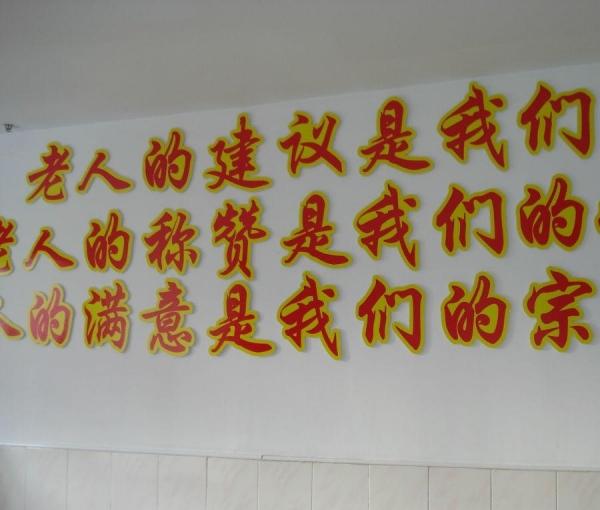 老人的建议是我们
老人的称赞是我们的
人的满意是我们的宗